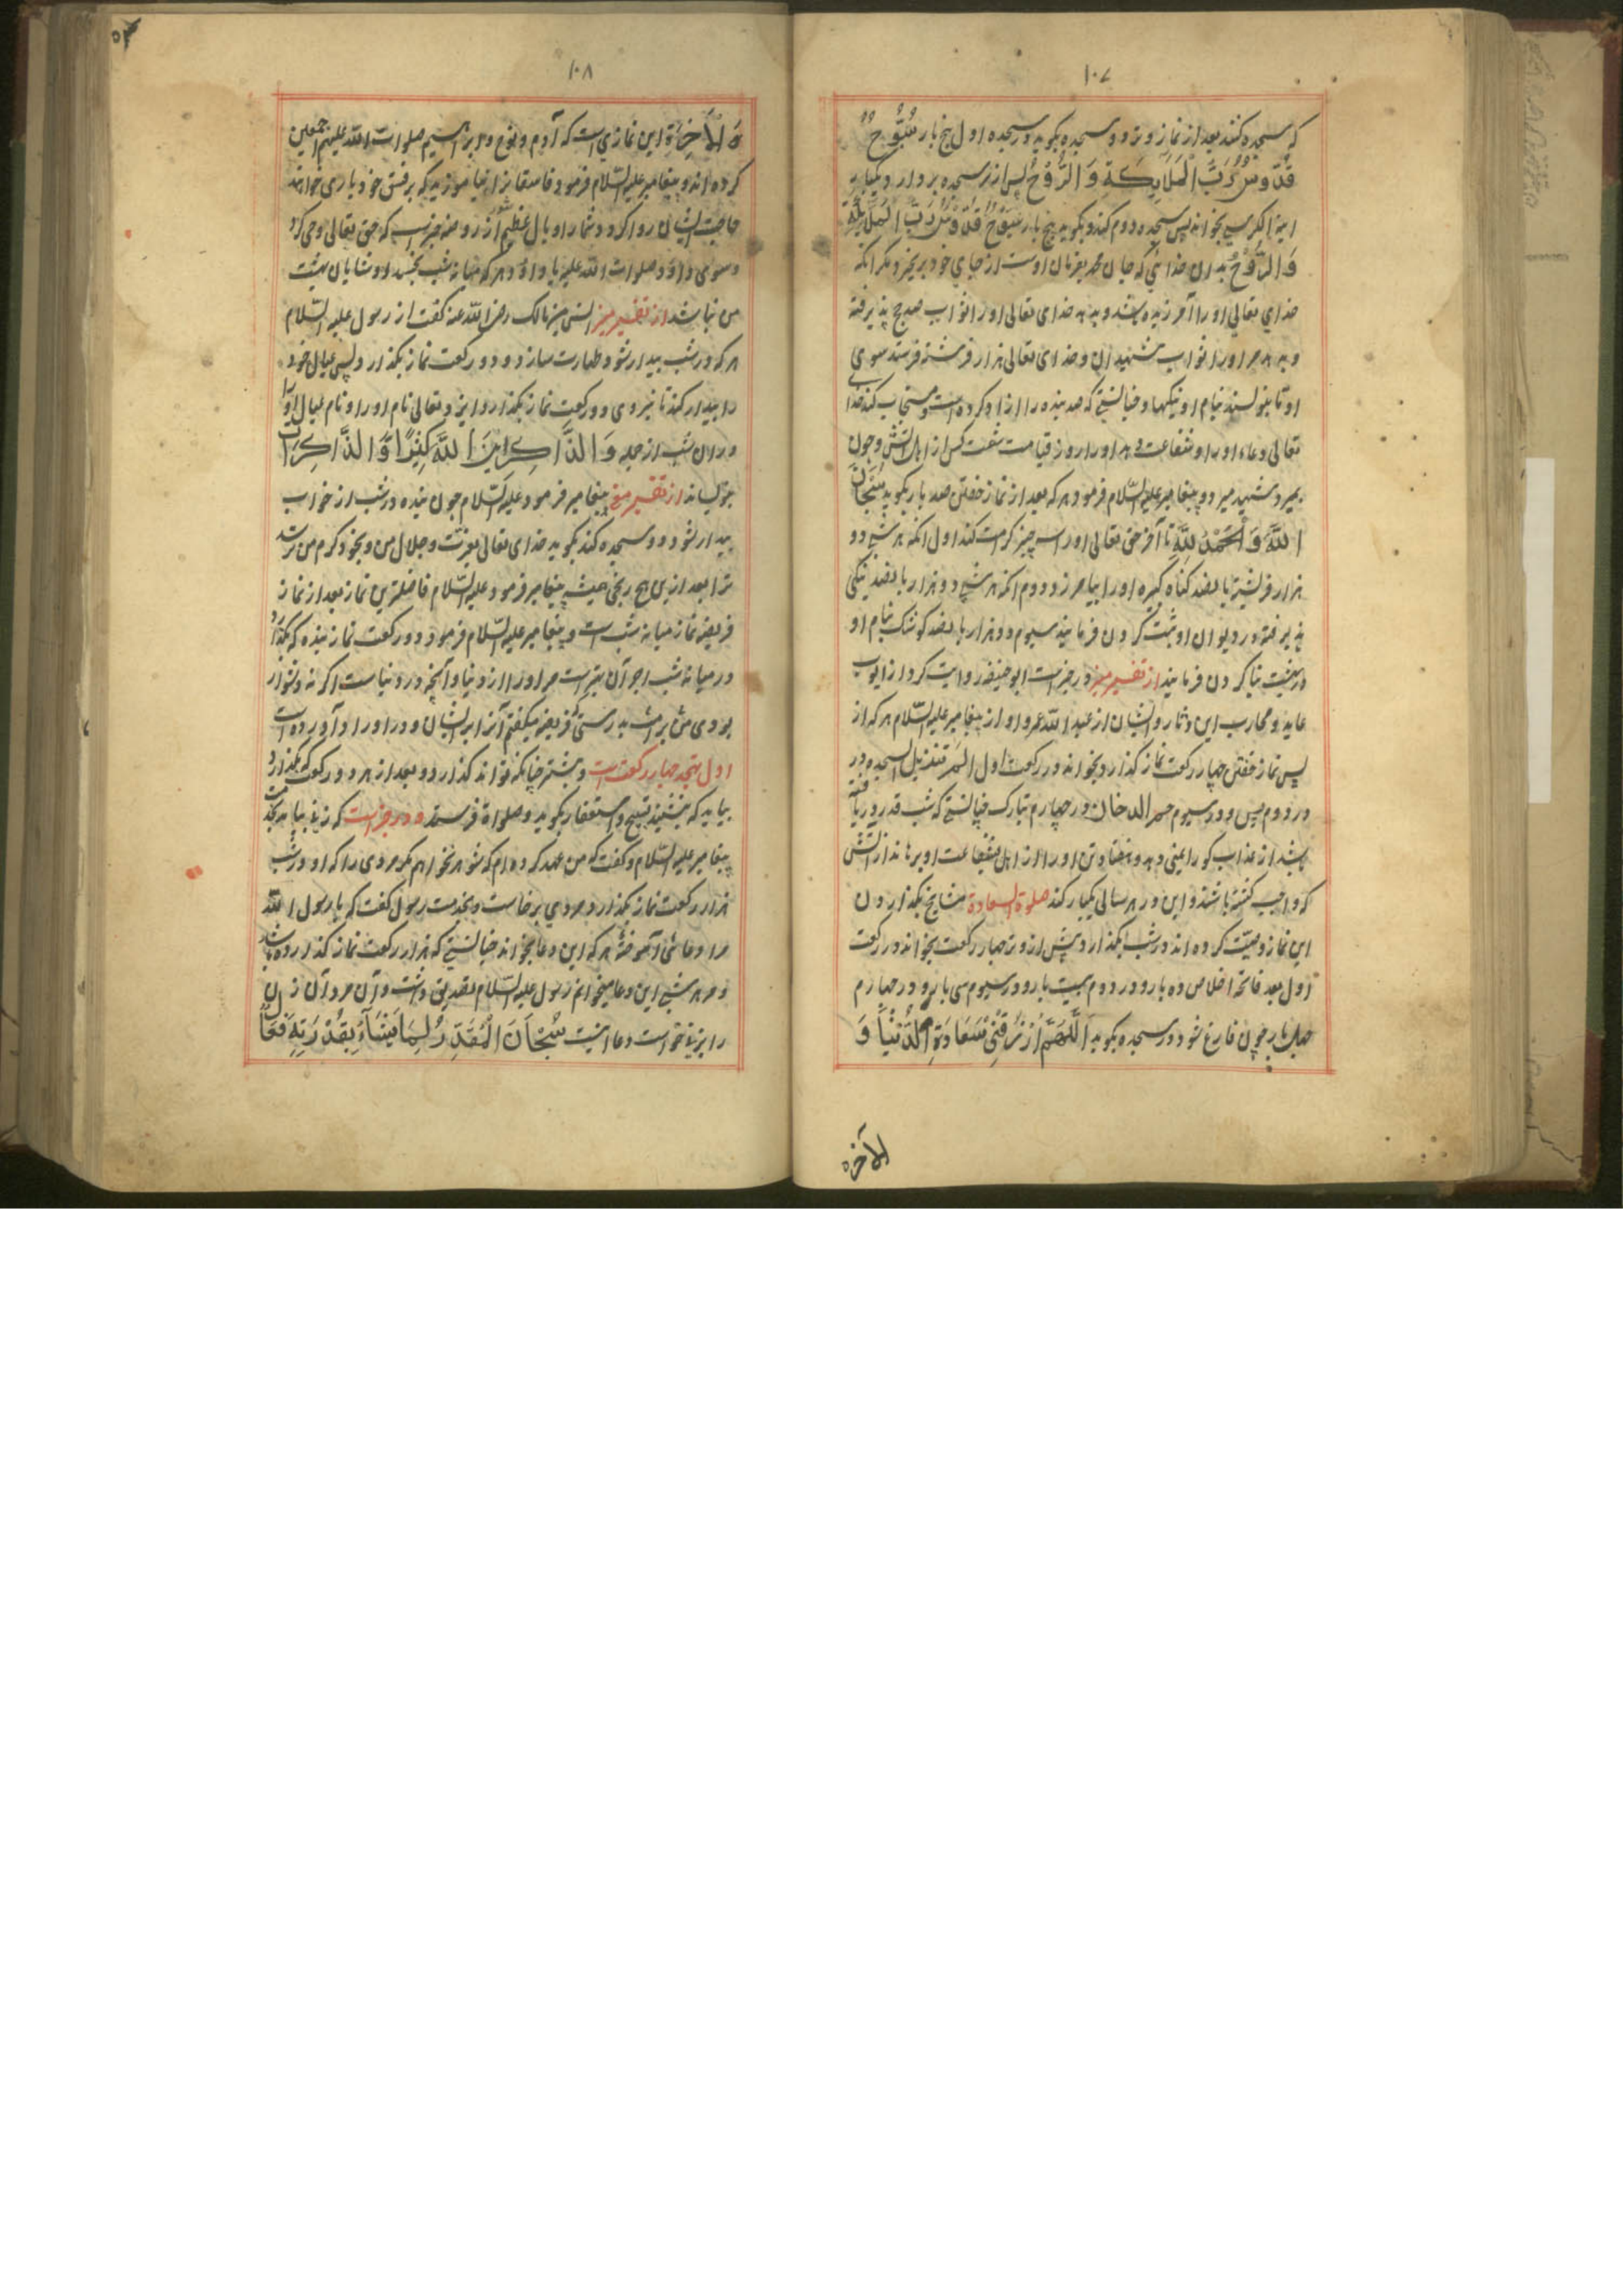 ١٠٧
که سجده کنند بعد از نماز وتر دو سجده بگوید در سجده اول پنج بار سُبُّوحٌ
قُدُّوسٌ رَبُّ الْمَلَائِکَةِ وَ الرُّوْحُ پس از سر سجده بردارد و یکبار
ایة الکرسی بخواند پس سجده دوم کند و بگوید پنج بار سُبُّوحٌ قُدُّوسٌ رَبُّ الْمَلَائِکَةِ
وَ الرُّوْحُ بدان خدائی که جان محمد بفرمان اوست از جای خود برنخیزد مگر آنکه
خدای تعالی او را آمرزیده باشد و بدهد خدای تعالی او را ثواب صد حج پذیرفته
و بدهد مر او را ثواب شهیدان و خدای تعالی هزار فرشته فرستد سوی
او تا بنویسند بنام او نیکیها و چنانستی که صد بنده را آزاد کرده است و مستجاب کند خدای
تعالی دعاء او را و شفاعت دهد او را روز قیامت شصت کس از اهل آتش و چون
بمیرد شهید میرد و پیغامبر علیه السّلام فرمود هر که بعد از نماز خفتن صد بار بگوید سُبْحَانَ
اللّٰهِ وَ الْحَمْدُ لِلّٰهِ تا آخر حق تعالی او را سه چیز کرامت کند اول آنکه هر شبی دو
هزار فریشته با پانصد گناه کبیره او را بیامرزد دوم آنکه هر شبی دو هزار با پانصد نیکی
پذیرفته در دیوان او ثبت کردن فرمایند سیوم دو هزار با پانصد کوشک بنام او
در بهشت بنا کردن فرمایند از تفسیر منیر در خبر است ابو حنیفه روایت کرد از ایوب
عاید و محارب ابن دثار و ایشان از عبد اللّه عمر و او از پیغامبر علیه السّلام هر که از
پس نماز خفتن چهار رکعت نماز گذارد و بخواند در رکعت اول الم تنزیل السجده در
در دوم یس و در سیوم حم الدخان و در چهارم تبارک چنانستی که شب قدر دریافته
باشد از عذاب گور ایمنی دهد و هفتاد تن او را از اهل شفاعت او برهاند از آتش
که واجب گشته باشند و این در هر سالی یکبار کند صلوة السعادة مشایخ بگذاردن
این نماز وصیّت کرده اند در شب بگذارد پیش از وتر چهار رکعت بخواند در رکعت
اول بعد فاتحه اخلاص ده بار و در دوم بیست بار و در سیوم سی بار و در چهارم
چهل بار چون فارغ شود در سجده بگوید اَللّٰهُمَّ ارْزُقْنِیْ سَعَادَةَ الدُّنْیَا وَ
الآخره
١٠٨
وَ الْاٰخِرَةِ این نمازی است که آدم و نوح و ابراهیم صلوات اللّه علیهم اجمعین
کرده اند و پیغامبر علیه السّلام فرمود فاسقانرا نیاموزید که بر فسق خود یاری خواهند
حاجت ایشان روا گردد و شما را وبال عظیم شود از روضه خبر است که حق تعالی وحی کرد
سوی داوٗد صلوات اللّه علیه یا داوٗد هر که میانه شب بخسبد او شایان بهشت
من نباشد از تفسیر منیر انس بن مالک رضی اللّه عنه گفت از رسول علیه السّلام
هر که در شب بیدار شود طهارت سازد و دو رکعت نماز بگذارد و پس عیال خود
را بیدار کند تا نیز وی دو رکعت نماز بگذارد ایزد تعالی نام او را و نام عیال او را
در ان شب از جمله وَ الذَّاکِرِیْنَ اللّٰهَ کَثِیْرًا وَّ الذَّاکِرَاتِ
بنویساند از تفسیر مغ پیغامبر فرمود علیه السّلام چون بنده در شب از خواب
بیدار شود و سجده کند بگوید خدای تعالی بعزّت و جلال من و بجود و کرم من نرسد
ترا بعد ازین هیچ رنجی پیغامبر فرمود علیه السّلام فاضلترین نماز بعد از نماز
فریضه نماز میانه شب است و پیغامبر علیه السّلام فرمود دو رکعت نماز بنده که بگذارد
در میانه شب اجر آن بهتر است مر او را از دنیا و آنچه در دنیاست اگر نه دشوار
بودی من بر امت بدرستی فریضه میگفتم آنرا بر ایشان و در اوراد آورده است
اول تهجد چهار رکعت است و بیشتر چنانکه تواند گذارد و بعد از هر دو رکعت که بگذارد
بباید که بنشیند تسبیح و استغفار بگوید و صلواة فرستد و در خبر است که زنی بیامد بخدمت
پیغامبر علیه السّلام و گفت که من عهد کرده ام که شوهر نخواهم مگر مردی را که او در شب
هزار رکعت نماز بگذارد مردی برخاست و بخدمت رسول گفت که یا رسول اللّه
مرا دعائی آموخته هر که این دعا بخواند چنانستی که هزار رکعت نماز گذارده باشد
و من هر شبی این دعا میخوانم رسول علیه السّلام تصدیق داشت و آن مرد آن زن
را بزنی خواست دعا اینست سُبْحَانَ الْمُقَدِّرُ لِمَا یَشَآءُ بِقُدْرَتِهٖ